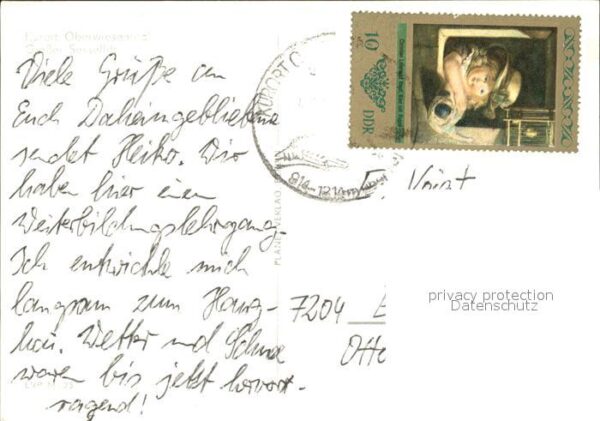 Kurort Oberwiesenthal
Großer Sessellift
Viele Grüße an
Euch Daheimgebliebene
sendet Heiko. Wir
haben hier einen
Weiterbildungslehrgang.
Ich entwickle mich
langsam zum Hang-
hai. Wetter und Schnee
waren bis jetzt hervor-
ragend!
KURORT O
PLANET-VERLAG
10
DDR
F. Voigt
7204
Otte
privacy protection
Datenschutz